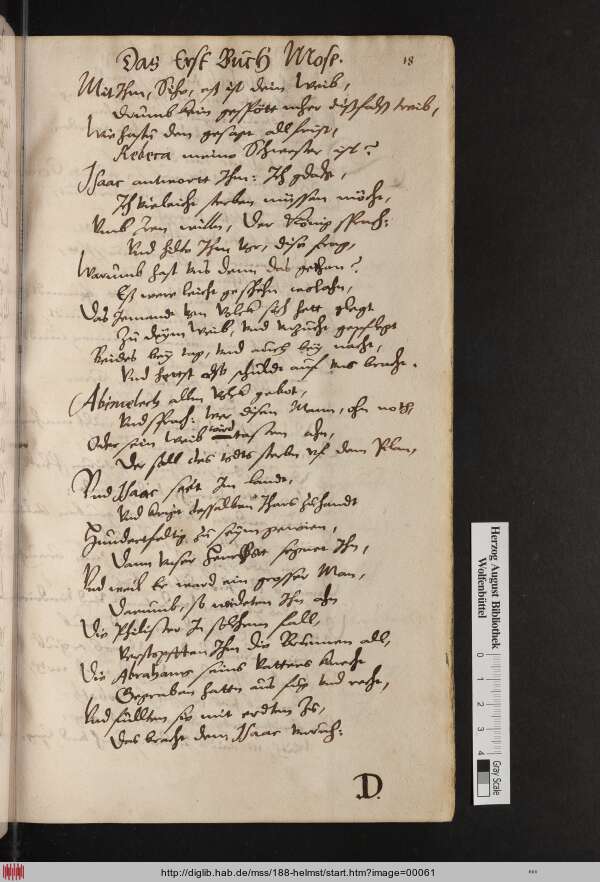 Das Erst Buch Mose.
18
Mit Ihm, Sihe, eß ist dein Weib,
Darumb kein gespött mher dißfals treib,
Wie hastu den gesagt all frist,
Rebeca meine Schwester ist?
Isaac antwortt Ihm: Ich gdacht,
Ich vieleicht sterben müssen möcht,
Umb Iren willn, Der König sprach:
Und hilt Ihm vor, dise frag,
Warumb hast uns denn das gethan?
Eß were leicht geschehn
Das Jemandt vom Volck sich hett glegt
Zu dEym Weib, und unzucht gepflegt
Beides bey tag, und auch bey nacht,
Und hettst also schuldt auf uns bracht.
Abimelech allen Volck gebot,
Und sprach: Wer disen Mann, ohn noth,
Oder sein Weib wird tasten ahn,
Der soll des todts sterben uf dem Plan,
Und Isaac seet Im Landt,
Und kriegt desselben Jhars zuhandt
Hundertfeltig zu seym gewien,
Dann unser Herr Gott segnet Ihn,
Und weil Er ward ein grosser Man,
Darumb, so neideten Ihn ahn
Die Philister In solchem fall,
Verstopfften Ihm die Brunnen all,
Die Abrahams seins Vatters knecht
Gegraben hatten aus fug und recht,
Und fülltten sie mit erdten Zu,
Das bracht dem Isaac unruh:
D.
Herzog August Bibliothek
Wolfenbüttel
0 1 2 3 4
Gray Scale
http://diglib.hab.de/mss/188-helmst/start.htm?image=00061